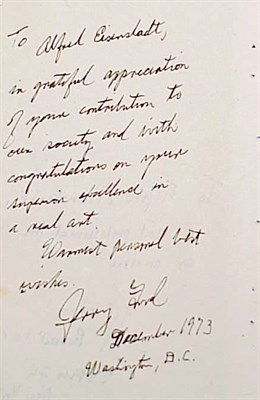 To Alfred Eisenstadt,
in grateful appreciation
of your contribution to
our society and with
congratulations on your
superior excellence in
a real art.
Warmest personal best
wishes.
Jerry Ford
December 1973
Washington, D.C.